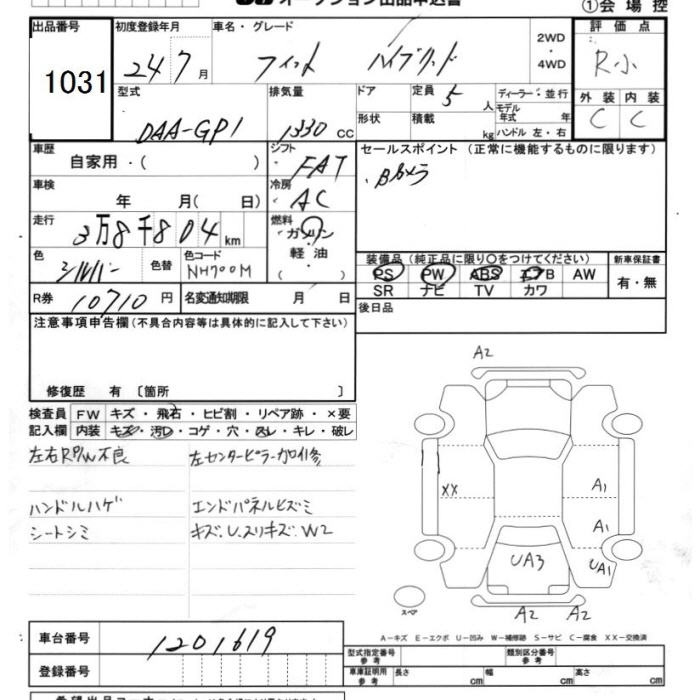 オークション出品申込書
①会場控
出品番号 初度登録年月 車名・グレード 2WD・4WD 評価点
1031 24 7月 フィット ハイブリッド R小
型式 排気量 ドア 定員 5人 ディーラー・並行 外装 内装
モデル年式 年
DAA-GP1 1330cc 形状 積載 kg ハンドル 左・右 C C
車歴 自家用・( ) シフト FAT セールスポイント (正常に機能するものに限ります)
・Bカメラ
車検 年 月( 日) 冷房 AC
走行 3万8千804km 燃料 ガソリン・軽油・( )
色 シルバー 色替 色コード NH700M
装備品 (純正品に限り○をつけてください) 新車保証書
PS PW ABS エアB AW 有・無
SR ナビ TV カワ
R券 10710円 名変通知期限 月 日 後日品
注意事項申告欄(不具合内容等は具体的に記入して下さい)
修復歴 有 〔箇所 〕
検査員記入欄 FW キズ・飛石・ヒビ割・リペア跡・×要
内装 キズ・汚レ・コゲ・穴・スレ・キレ・破レ
左右RP/W不良 左センターピラー加修
ハンドルハゲ エンドパネルヒズミ
シートシミ キズ、U、スリキズ、W2
A2
XX A1
A1
UA3 UA1
スペア
A2 A2
A-キズ E-エクボ U-凹み W-補修跡 S-サビ C-腐食 XX-交換済
車台番号 1201619
型式指定番号 参考 類別区分番号 参考
登録番号 車庫証明用 参考 長さ cm 幅 cm 高さ cm